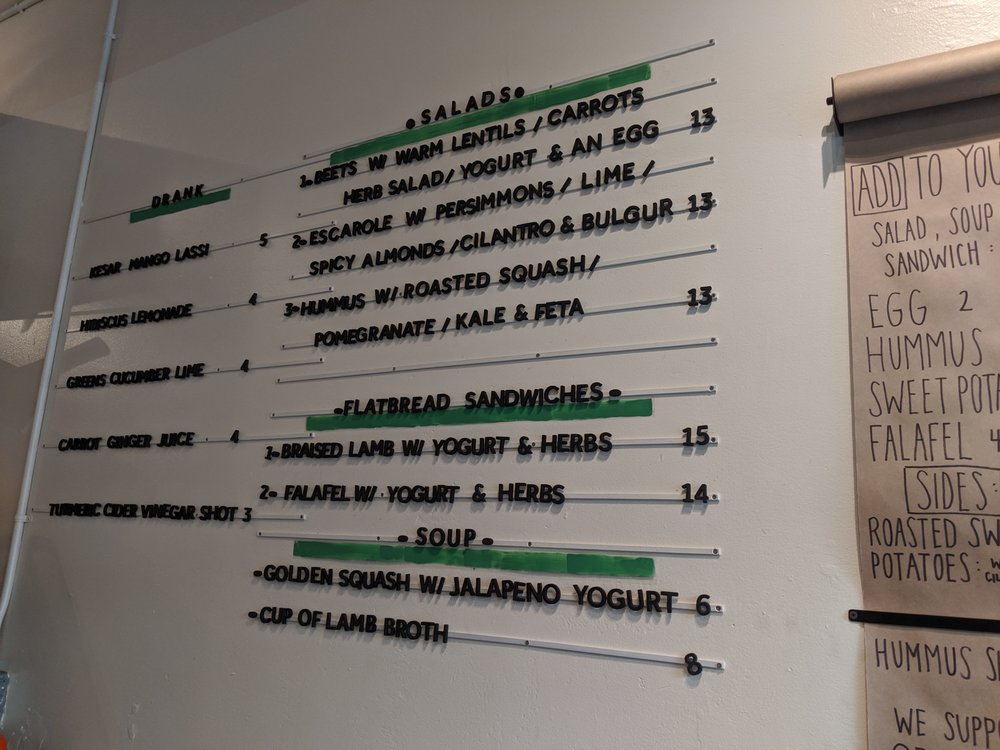 DRANK
KESAR MANGO LASSI 5
HIBISCUS LEMONADE 4
GREENS CUCUMBER LIME 4
CARROT GINGER JUICE 4
TURMERIC CIDER VINEGAR SHOT 3
•SALADS•
1• BEETS W/ WARM LENTILS / CARROTS
HERB SALAD / YOGURT & AN EGG 13
2• ESCAROLE W/ PERSIMMONS / LIME /
SPICY ALMONDS / CILANTRO & BULGUR 13
3• HUMMUS W/ ROASTED SQUASH /
POMEGRANATE / KALE & FETA 13
•FLATBREAD SANDWICHES•
1• BRAISED LAMB W/ YOGURT & HERBS 15
2• FALAFEL W/ YOGURT & HERBS 14
•SOUP•
•GOLDEN SQUASH W/ JALAPENO YOGURT 6
•CUP OF LAMB BROTH 8
ADD TO
SALAD, SOUP
SANDWICH:
EGG 2
HUMMUS
SWEET
FALAFEL 4
SIDES:
ROASTED
POTATOES:
HUMMUS
WE